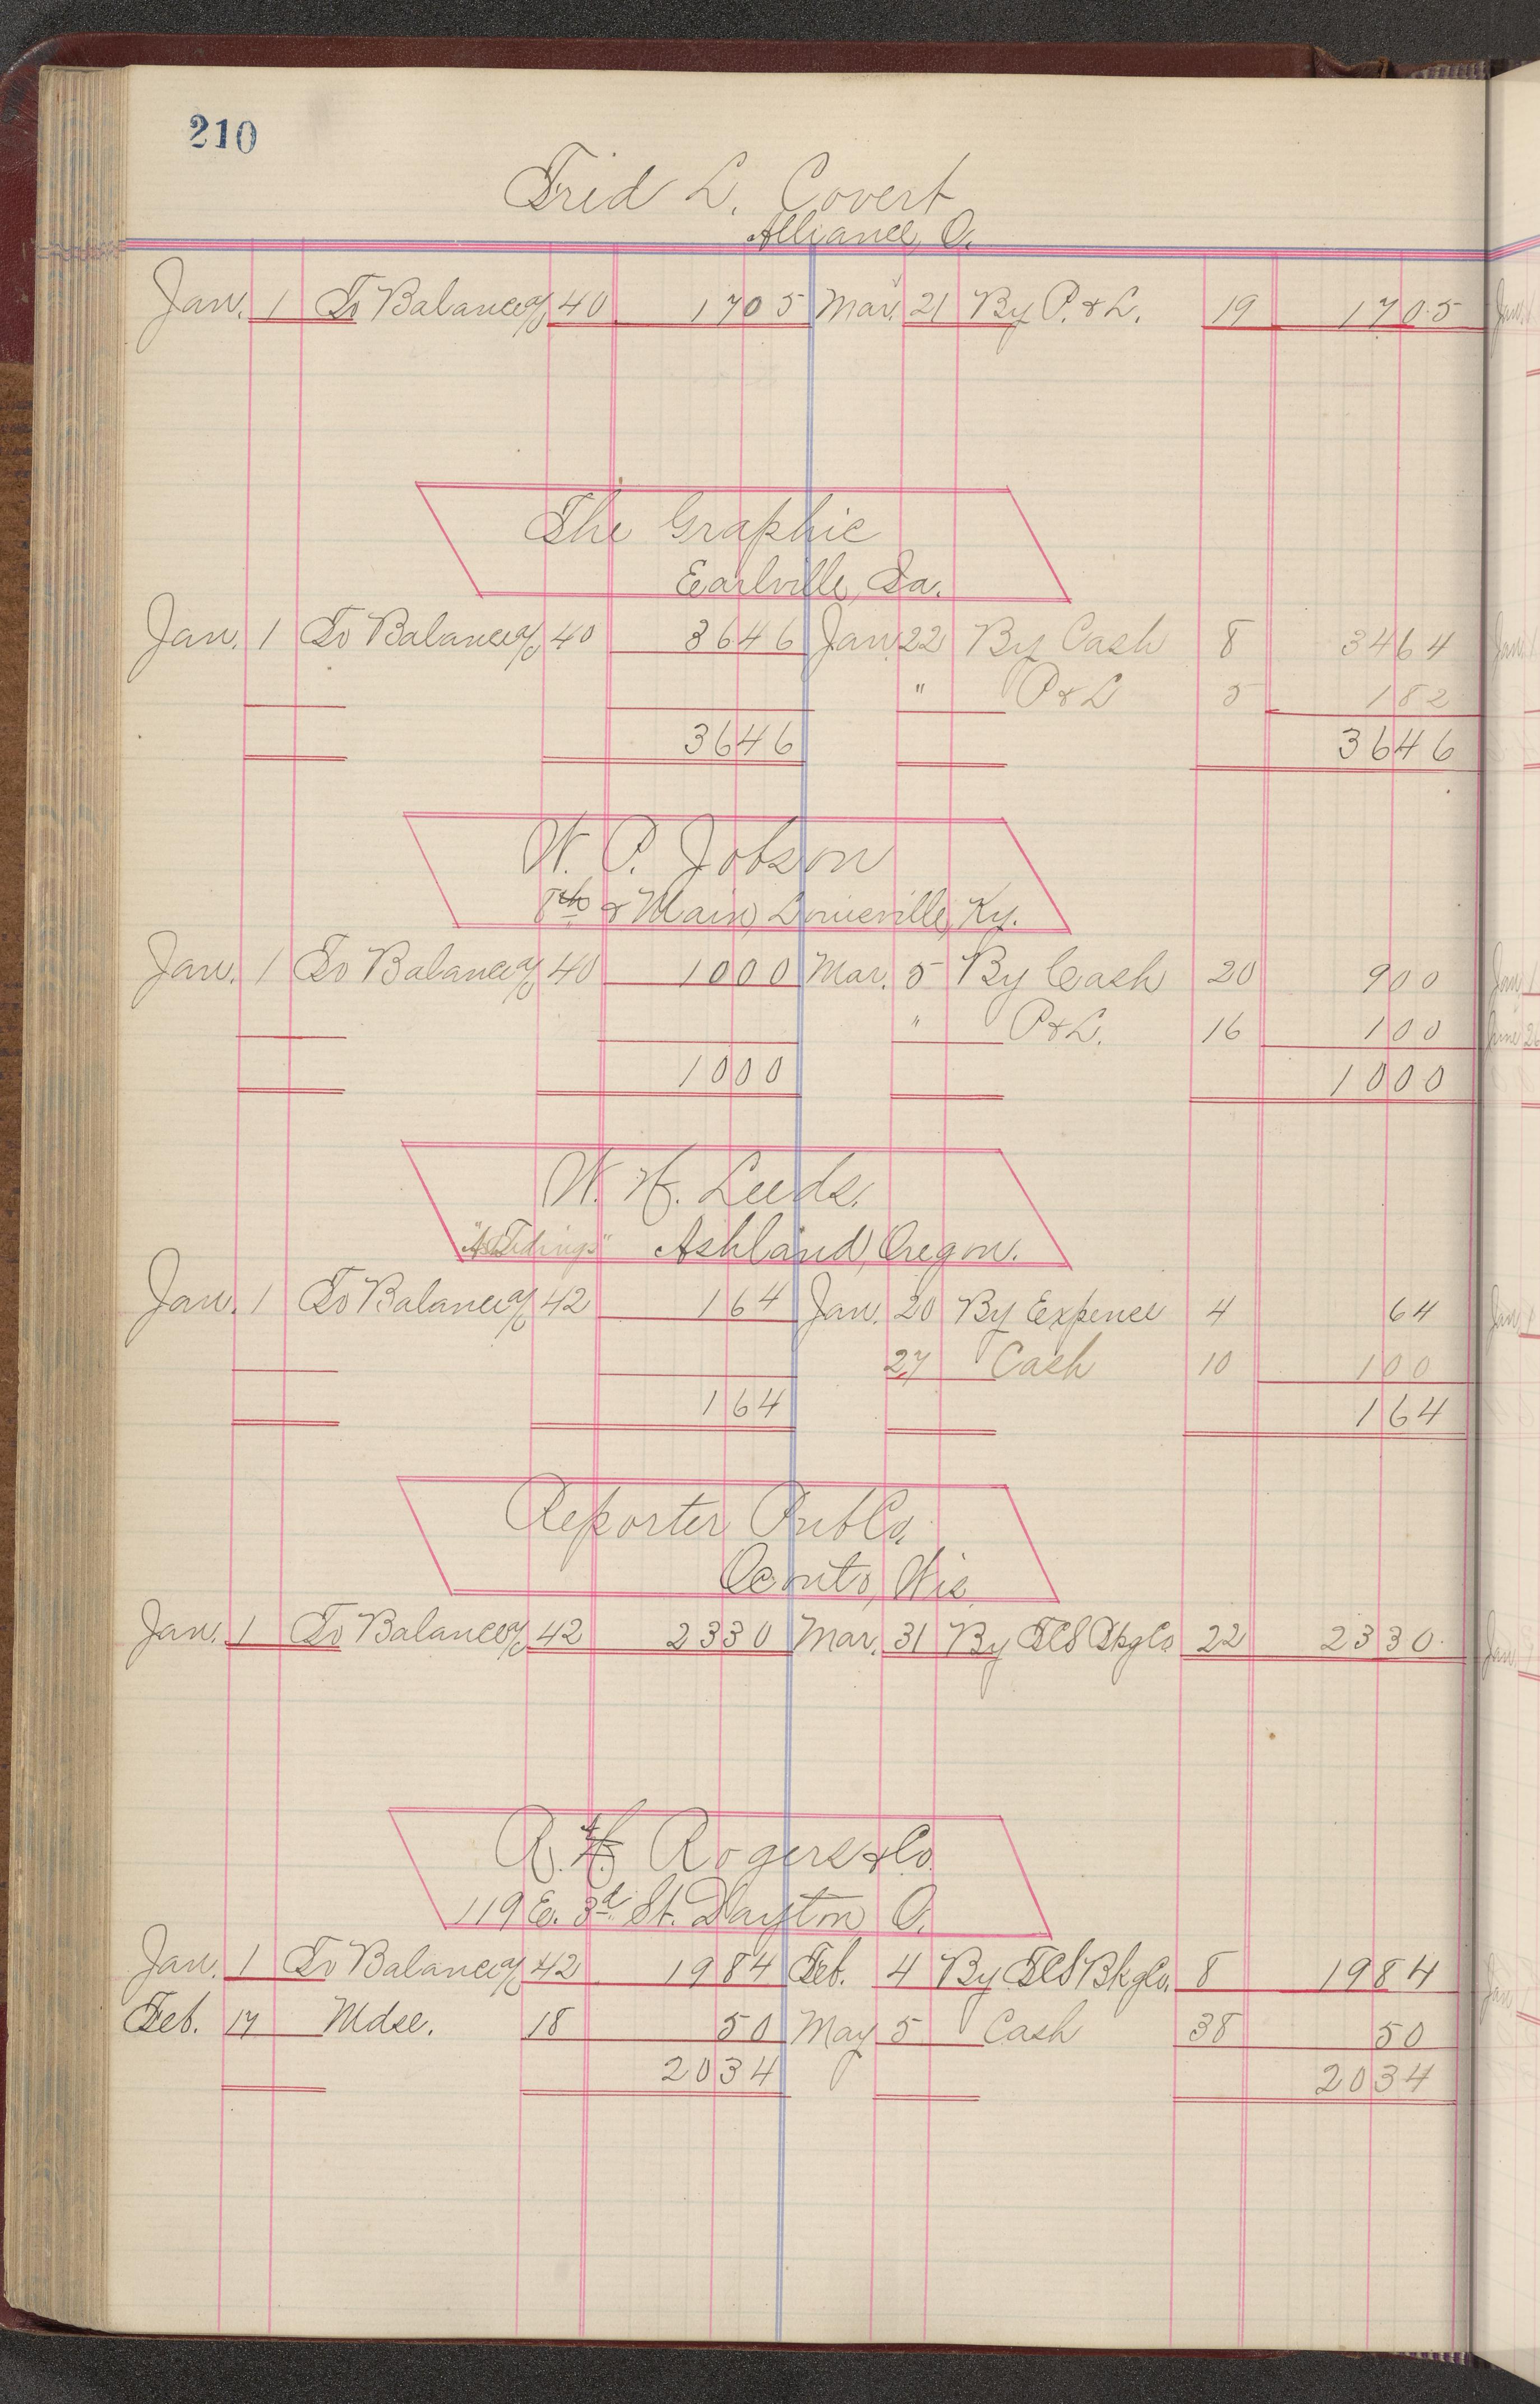 210
Fred L. Covert
Alliance, O.
Jan. 1 To Balance a/c 40 1705 Mar. 21 By P. & L. 19 1705
The Graphic
Earlville, Ia.
Jan. 1 To Balance a/c 40 3646 Jan. 22 By Cash 8 3464
" P & L 5 182
3646 3646
W. P. Jobson
8th & Main, Louieville, Ky.
Jan. 1 To Balance a/c 40 1000 Mar. 5 By Cash 20 900
" P & L. 16 100
1000 1000
W. H. Leeds.
Tidings" Ashland, Oregon.
Jan. 1 To Balance a/c 42 164 Jan. 20 By Expence 4 64
27 Cash 10 100
164 164
Reporter Pub Co.
Oconto, Wis.
Jan. 1 To Balance a/c 42 2330 Mar. 31 By 22 2330
R. H. Rogers & Co.
119 E. 3d St. Dayton, O.
Jan. 1 To Balance a/c 42 1984 Feb. 4 By 8 1984
Feb. 17 Mdse. 18 50 May 5 Cash 38 50
2034 2034